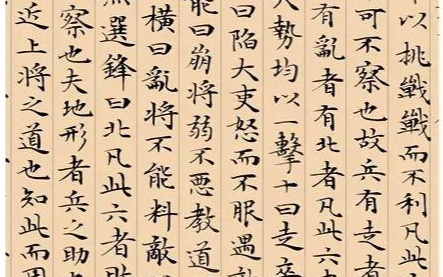 以挑戰戰而不利凡此
可不察也故兵有走者
有亂者有北者凡此六
勢均以一擊十曰走卒
曰陷大吏怒而不服遇敵
能曰崩將弱不悪教道
橫曰亂將不能料敵
選鋒曰北凡此六者
察也夫地形者兵之助
近上將之道也知此而用